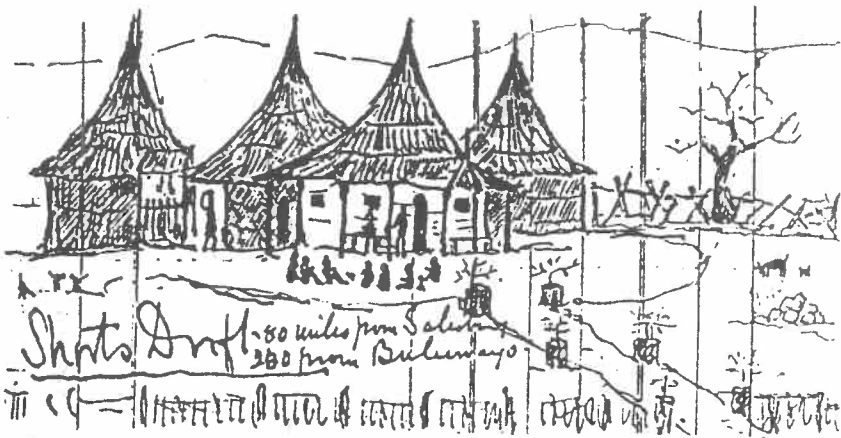 Shorts Drift - 80 miles from Salisbury
280 from Buluwayo